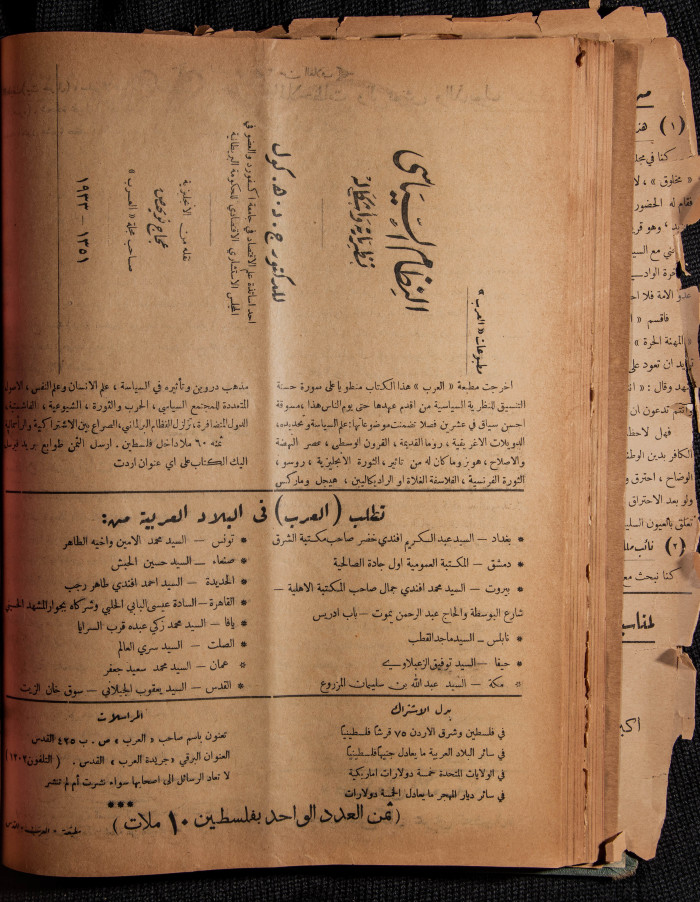 مطبوعات «العرب»
النظام السياسي
نظرياته وأشكاله
للدكتور ج. د. ه. كول
احد اساتذة علم الاقتصاد في جامعة اكسفورد والعضو في
المجلس الاستشاري الاقتصادي للحكومة البريطانية
نقله من الانجليزية
عجاج نويهض
صاحب مجلة «العرب»
١٣٥١ – ١٩٣٣
اخرجت مطبعة «العرب» هذا الكتاب منطويا على صورة حسنة
التنسيق للنظرية السياسية من اقدم عهدها حتى يوم الناس هذا، مسوقة
احسن سياق في عشرين فصلا تضمنت موضوعاتها: علم السياسة وتحديده،
الدويلات الاغريقية، روما القديمة، القرون الوسطى، عصر النهضة
والاصلاح، هوبز وما كان له من تاثير، الثورة الانجليزية، روسو،
الثورة الفرنسية، الفلاسفة الغلاة او الراديكاليين، هيجل وماركس
مذهب دروين وتأثيره في السياسة، علم الانسان وعلم النفس،
المتعددة للمجتمع السياسي، الحرب والثورة، الشيوعية، الفاشستية،
الدول المتضافرة، تزلزل النظام البرلماني، الصراع بين الاشتراكية والرأسمالية
ثمنه ٦٠ ملا داخل فلسطين. ارسل الثمن طوابع بريد
اليك الكتاب على اي عنوان اردت
تطلب (العرب) في البلاد العربية من:
* بغداد – السيد عبد الكريم افندي خضر صاحب مكتبة الشرق
* دمشق – المكتبة العمومية اول جادة الصالحية
* بيروت – السيد محمد افندي جمال صاحب المكتبة الاهلية –
شارع البوسطة والحاج عبد الرحمن يموت – باب ادريس
* نابلس – السيد ماجد القطب
* حيفا – السيد توفيق الزعبلاوي
* مكة – السيد عبد الله بن سليمان المزروع
* تونس – السيد محمد الامين واخيه الطاهر
* صنعاء – السيد حسين الحبش
* الحديدة – السيد احمد افندي طاهر رجب
* القاهرة – السادة عيسى البابي الحلبي وشركاه بجوار المشهد الحسيني
* يافا – السيد محمد زكي عبده قرب السرايا
* الصلت – السيد سري العالم
* عمان – السيد محمد سعيد جعفر
* القدس – السيد يعقوب الجيلاني – سوق خان الزيت
بدل الاشتراك
في فلسطين وشرق الاردن ٧٥ قرشا فلسطينيا
في سائر البلاد العربية ما يعادل جنيها فلسطينيا
في الولايات المتحدة خمسة دولارات اماريكية
في سائر ديار المهجر ما يعادل الخمسة دولارات
المراسلات
تعنون باسم صاحب «العرب» ص. ب ٤٣٥ القدس
العنوان البرقي «جريدة العرب» القدس. (التلفون ١٢٠٢)
لا تعاد الرسائل الى اصحابها سواء نشرت أم لم تنشر
***
(ثمن العدد الواحد بفلسطين ١٠ ملات)
مطبعة «العرب» القدس
(١)
كنا في
«مخلوق»، لا
فقام له الحضور
عدو الامة فلا
فاقسم «
«المهنة الحرة»
ان تعود على
وقال: «
وانتم تدعون ان
فهل لاحظ
الكافر بدين
الوضاح، احترق
ولو بعد الاحتراق
تعلق بالعيون
(٢) نائب
كنا نبحث